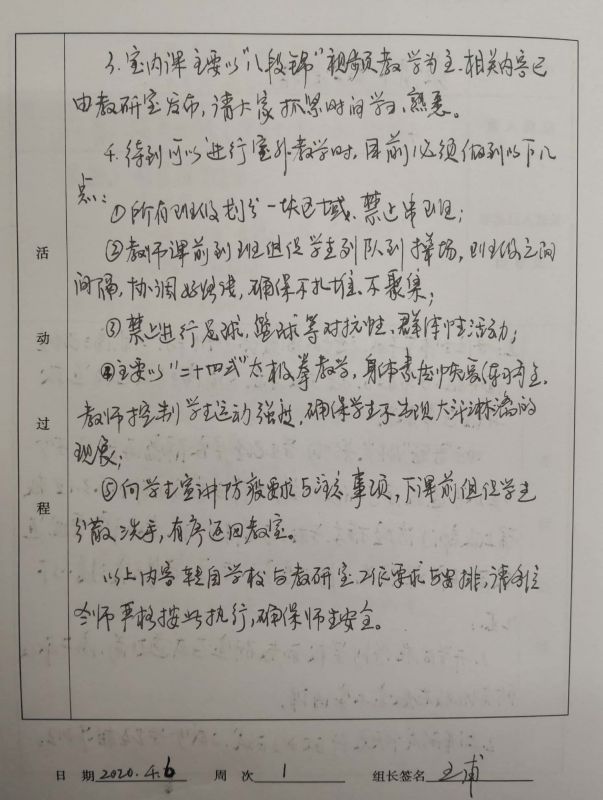 3.室内课主要以“八段锦”视频教学为主.相关内容已
由教研室发布,请大家抓紧时间学习、熟悉。
4.待到可以进行室外教学时,目前必须做到以下几
点:
①所有班级划分一块区域、禁止串班;
②教师课前到班组织学生列队到操场,班级之间
间隔,协调好路线,确保不扎堆、不聚集;
③禁止进行足球,篮球等对抗性、群体性活动;
④主要以“二十四式”太极拳教学,身体素质恢复练习为主,
教师控制学生运动强度,确保学生不出现大汗淋漓的
现象;
⑤向学生宣讲防疫要求与注意事项,下课前组织学生
分散洗手,有序返回教室。
以上内容转自学校与教研室工作要求与安排,请各位
老师严格按此执行,确保师生安全。
活
动
过
程
日 期 2020.4.6 周 次 1 组长签名